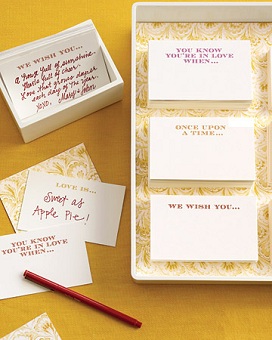 WE WISH YOU...
A house full of sunshine.
Hearts full of cheer.
Love that grows deeper
each day of the year.
xoxo, Mary & John
LOVE IS...
Sweet as
Apple Pie!
YOU KNOW
YOU'RE IN LOVE
WHEN...
YOU KNOW
YOU'RE IN LOVE
WHEN...
ONCE UPON
A TIME...
WE WISH YOU...